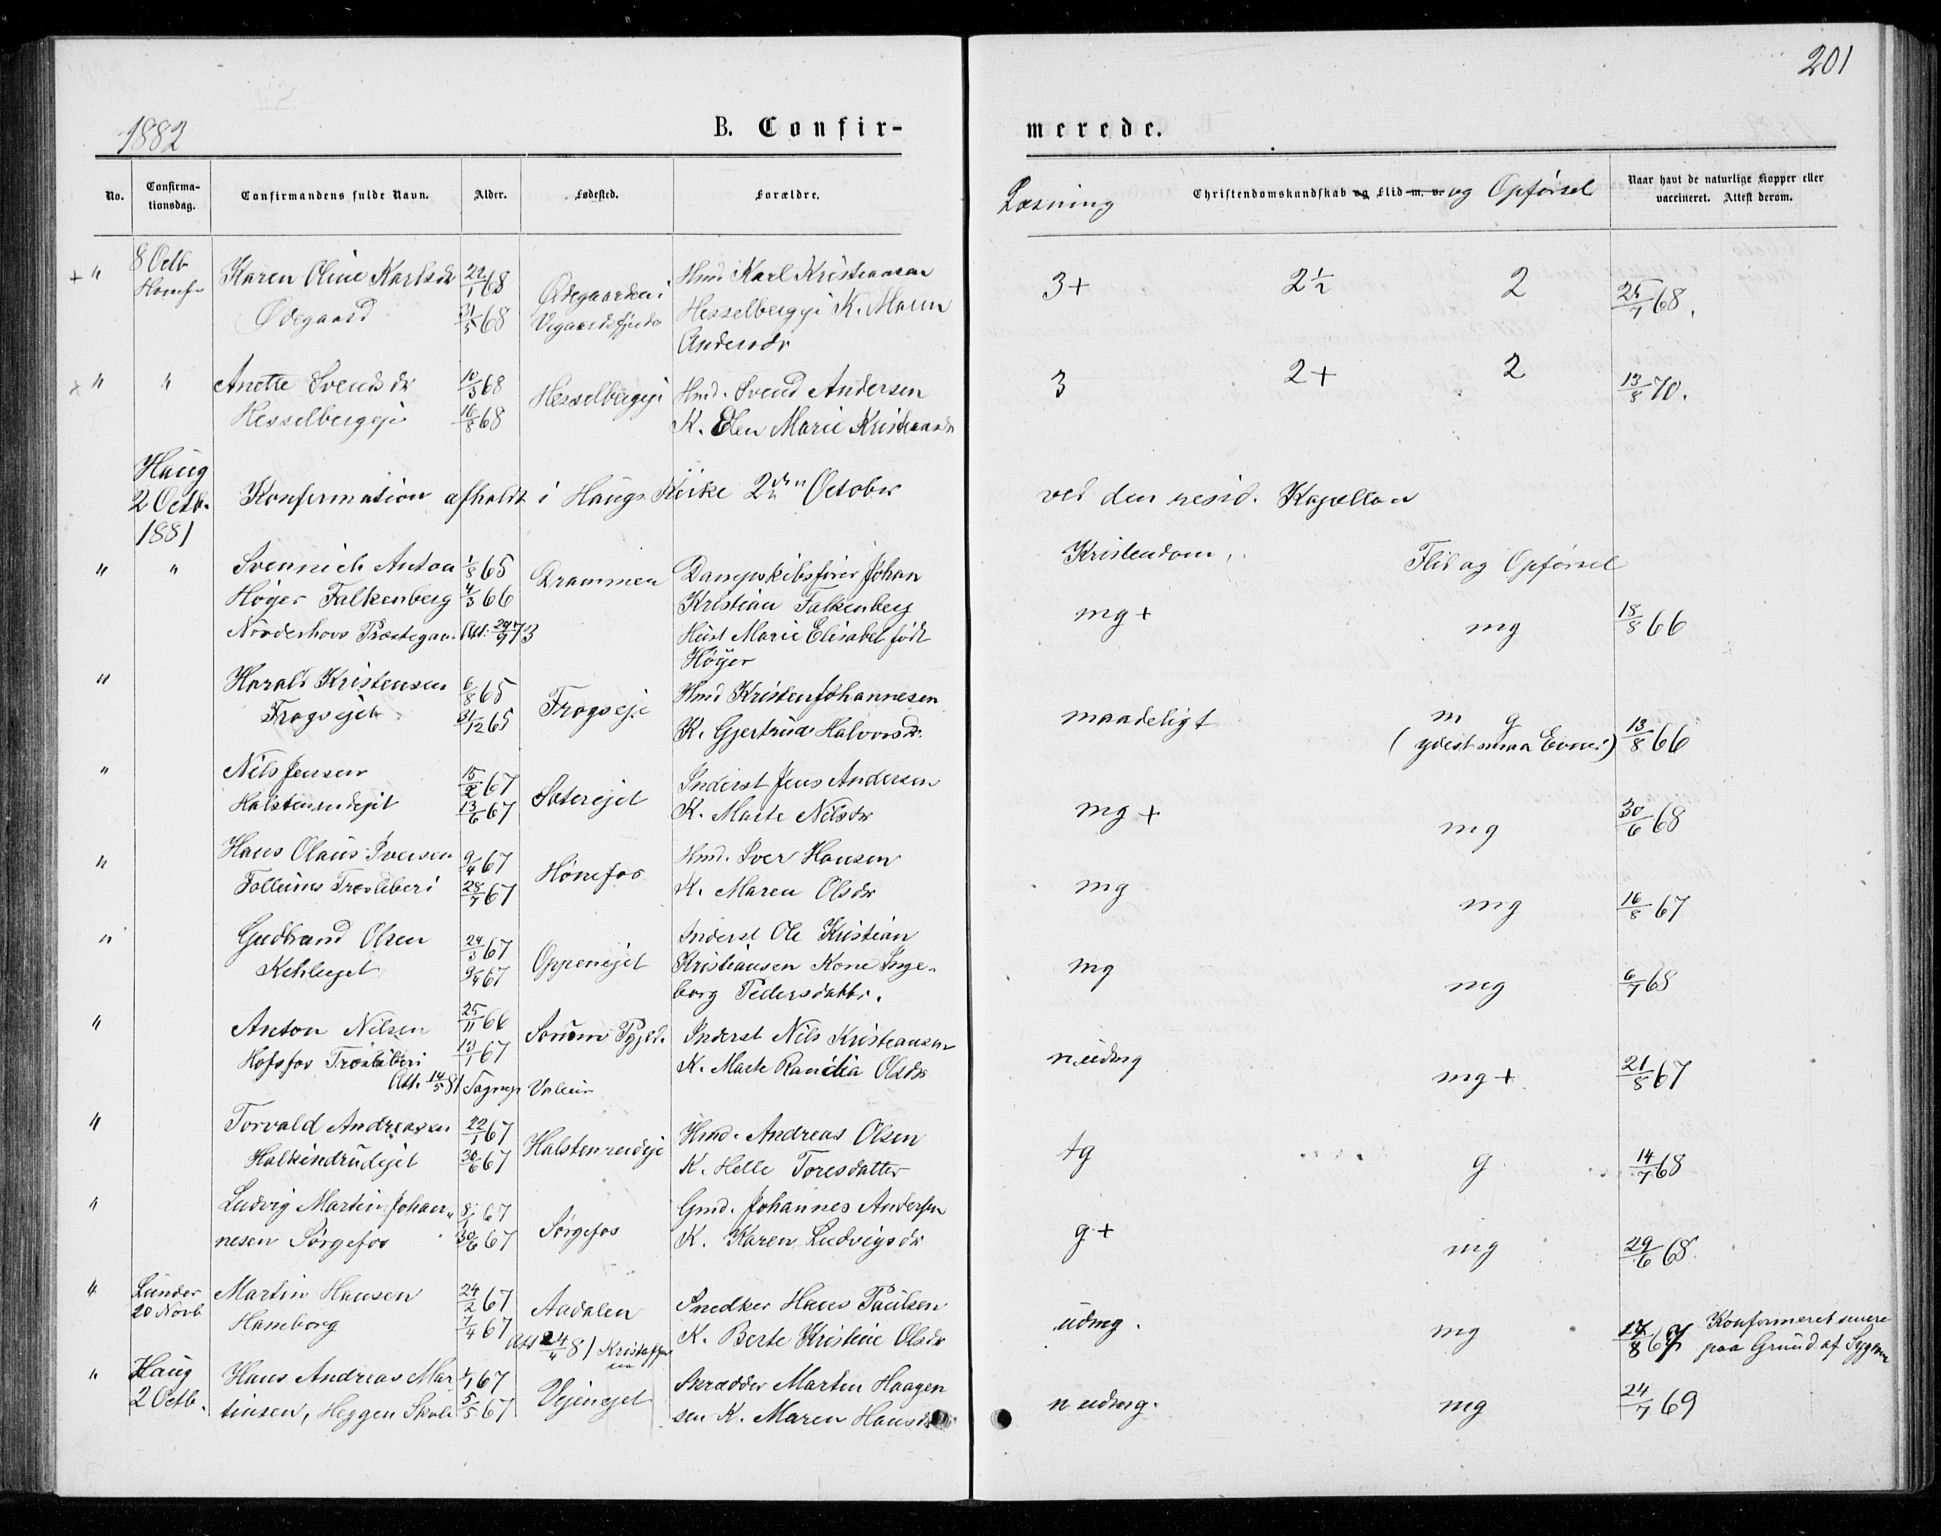 201
1882
B. Confir-
merede.
No.
Confirma-
tionsdag.
Confirmandens fulde Navn.
Alder.
Fødested.
Forældre.
Læsning
Christendomskundskab og Flid m. v. og Opførsel
Naar havt de naturlige Kopper eller
vaccineret. Attest derom.
+ " 8 Octb Karen Oline Karlsdr 22/1 68 Ødegaarden i Hmd Karl Kristiansen 3+ 2½ 2 25/7 68.
Ødegaard 31/5 68 Hesselbergeje K. Maren
Andersdr
x " " Anette Svendsdr 10/3 68 Hesselbergeje Hmd. Svend Andersen 3 2+ 2 13/8 70.
Hesselbergeje 16/8 68 K. Elen Marie Kristiansdr
Haug
2 Octb. Konfirmation afholdt i Haugs Kirke 2den October ved den resid. Kapellan
1881
Kristendom, Flid og Opførsel
" " Svennich Anton 1/8 65 Drammen Dampskibsfører Johan
Høyer Falkenberg 4/3 66 Kristian Falkenberg mg+ mg 18/8 66
Norderhovs Præstegaa Att. 24/9 73 Hust Marie Elisabet født
Høyer
" Harald Kristensen 6/8 65 Frogseje Hmd Kristen Johannesen maadeligt m g 13/8 66
Frogsejet 31/12 65 K. Gjertrud Halvorsdr. ( smaa Evner)
" Nils Jensen 15/2 67 Setersejet Inderst Jens Andersen mg+ mg 30/6 68
13/6 67 K. Marte Nilsdr
" Hans Olaus Iversen 9/4 67 Hønefos Hmd. Iver Hansen mg mg 16/8 67
Follums Træsliberi 28/7 67 K. Maren Olsdr
" Gudbrand Olsen 24/3 67 Oppenejet Inderst Ole Kristian mg mg 6/7 68
9/4 67 Kristiansen Kone Inge-
borg Pedersdattr.
" Anton Nilsen 25/11 66 Inderst Nils Kristiansen n. udmg mg+ 21/8 67
Hofsfos Træsliberi 13/1 67 K. Marte Randia Olsdr
Att. 14/5 81
" Torvald Andreasen 22/1 67 Hmd. Andreas Olsen tg g 14/7 68
30/6 67 K. Helle Toresdatter
" Ludvig Martin Johan- 8/1 67 Sørgefos Gmd. Johannes Andersen g+ mg 29/6 68.
nesen Sørgefos 30/6 67 K. Karen Ludvigsdr
" Lunder Martin Hansen 24/2 67 Aadalen Snedker Hans Paulsen udmg. mg 17/8 67 Konfirmeret senere
20 Novb Haneborg 7/4 67 K. Berte Kristine Olsdr paa Grund af Sygdom
Att 24/4 81
" Haug Hans Andreas Mar 4/1 67 Vejenejet Skrædder Martin Haagen n udmg. mg 24/7 69
2 Octb. tinsen, Heggen Skole 5/5 67 sen K. Maren Hansdr